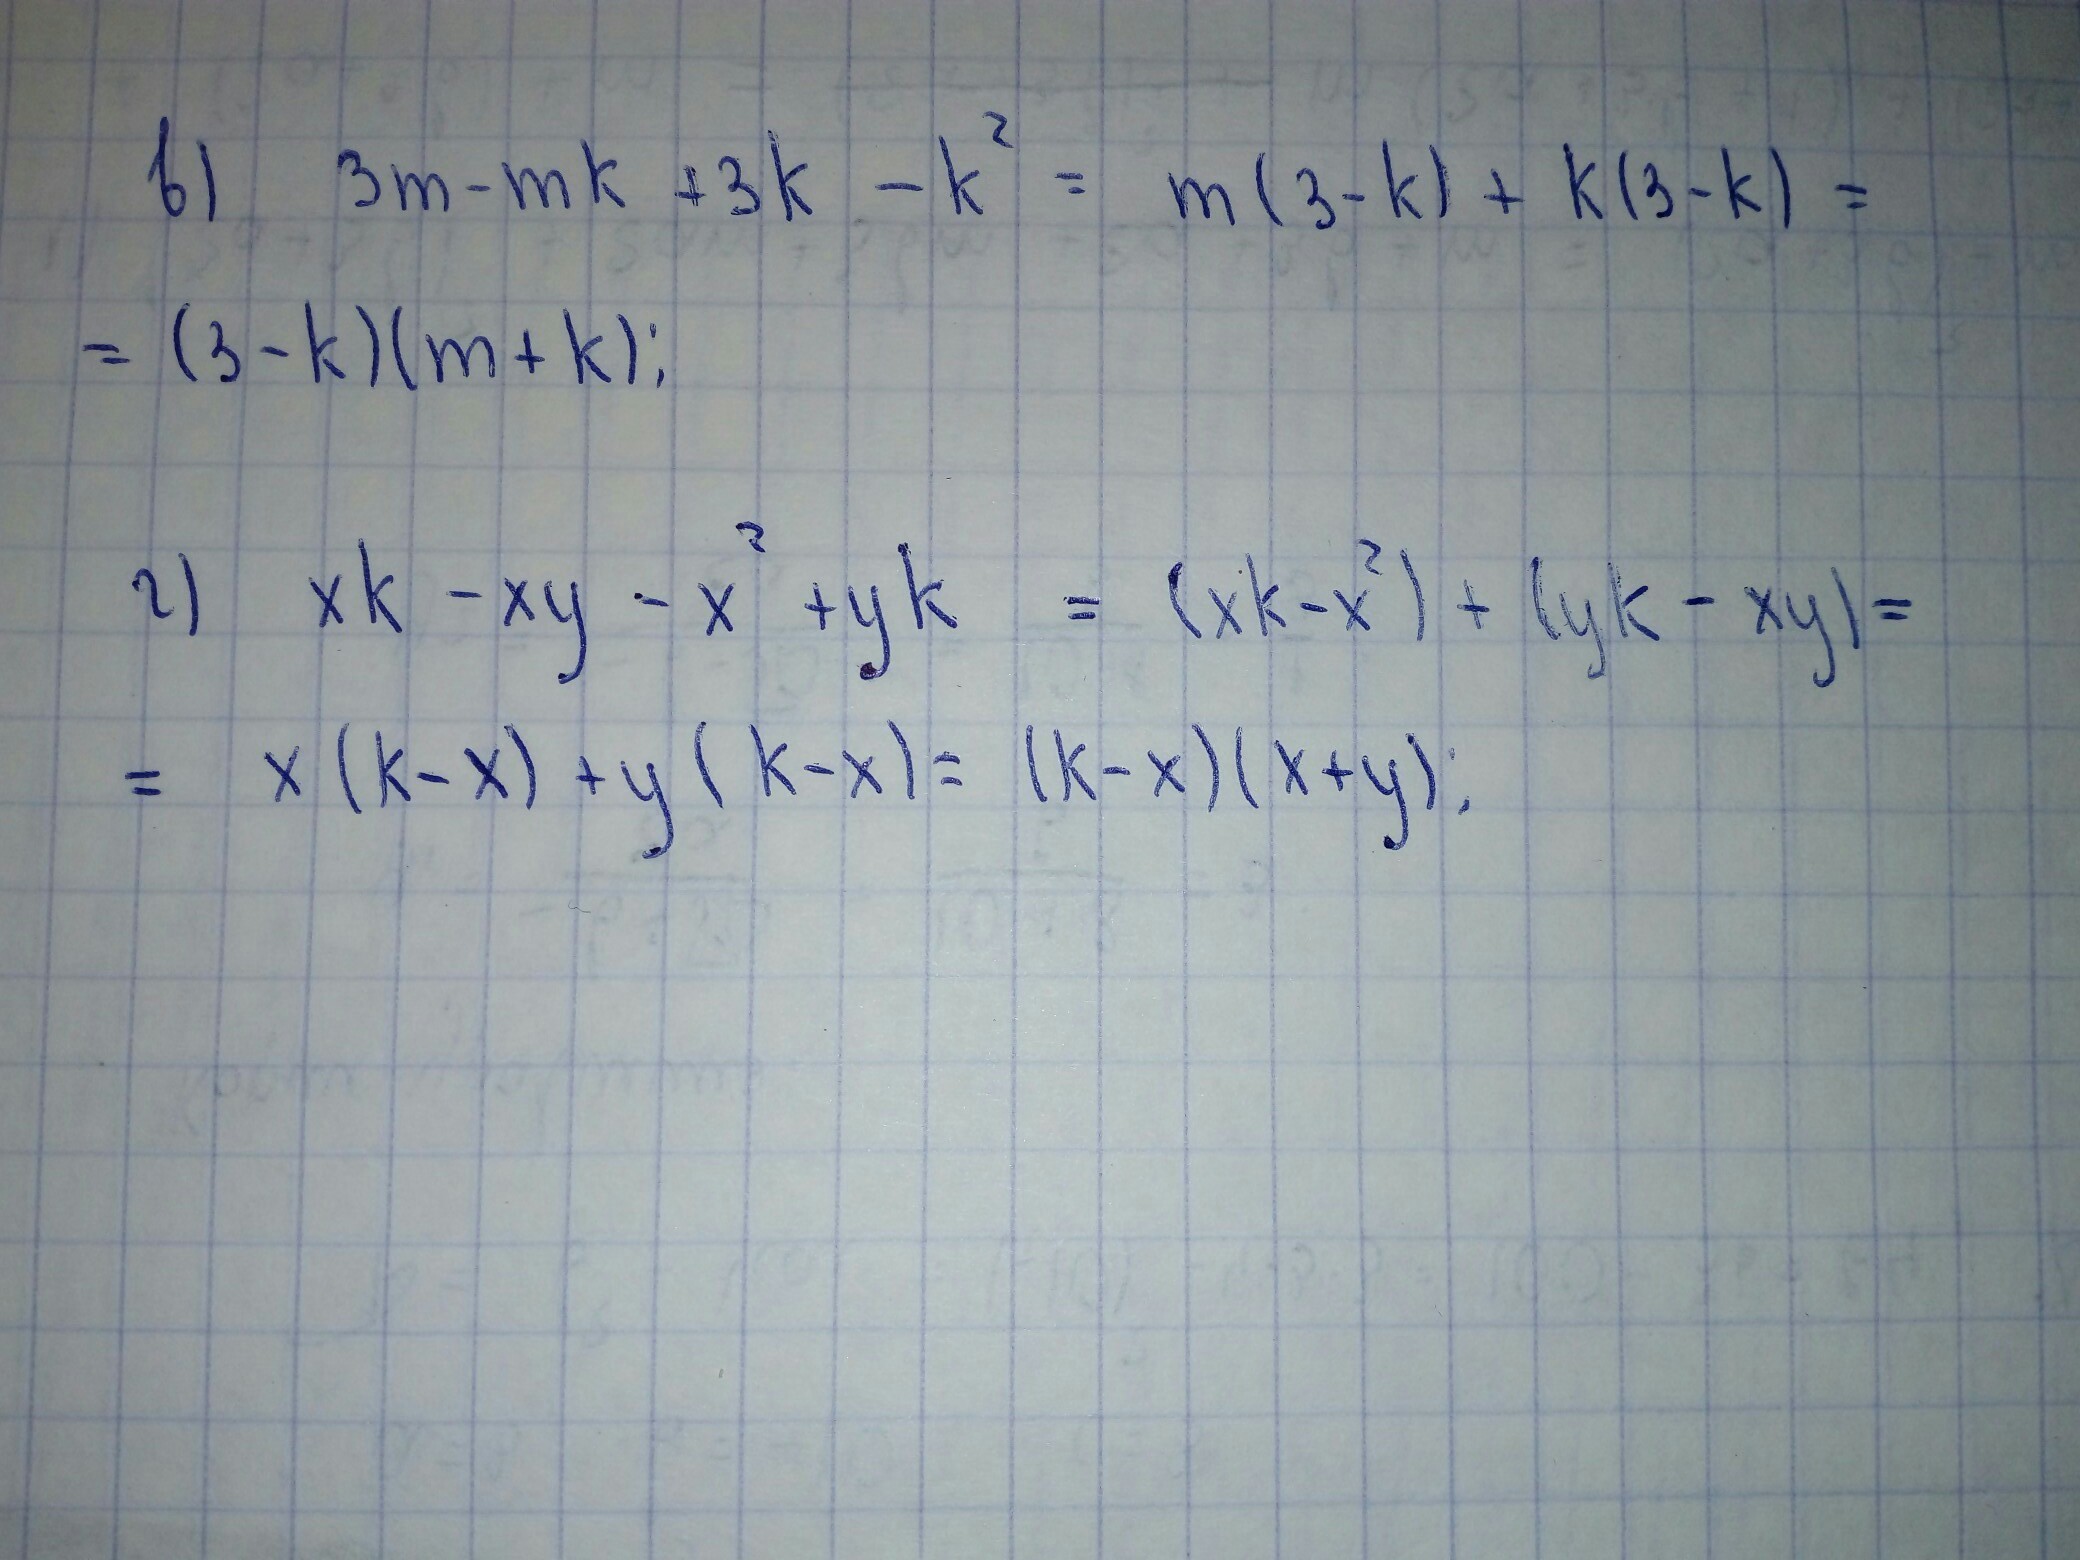 в) 3m-mk+3k-k² = m(3-k)+k(3-k)=
=(3-k)(m+k);
г) xk-xy-x²+yk = (xk-x²)+(yk-xy)=
= x(k-x)+y(k-x)=(k-x)(x+y);